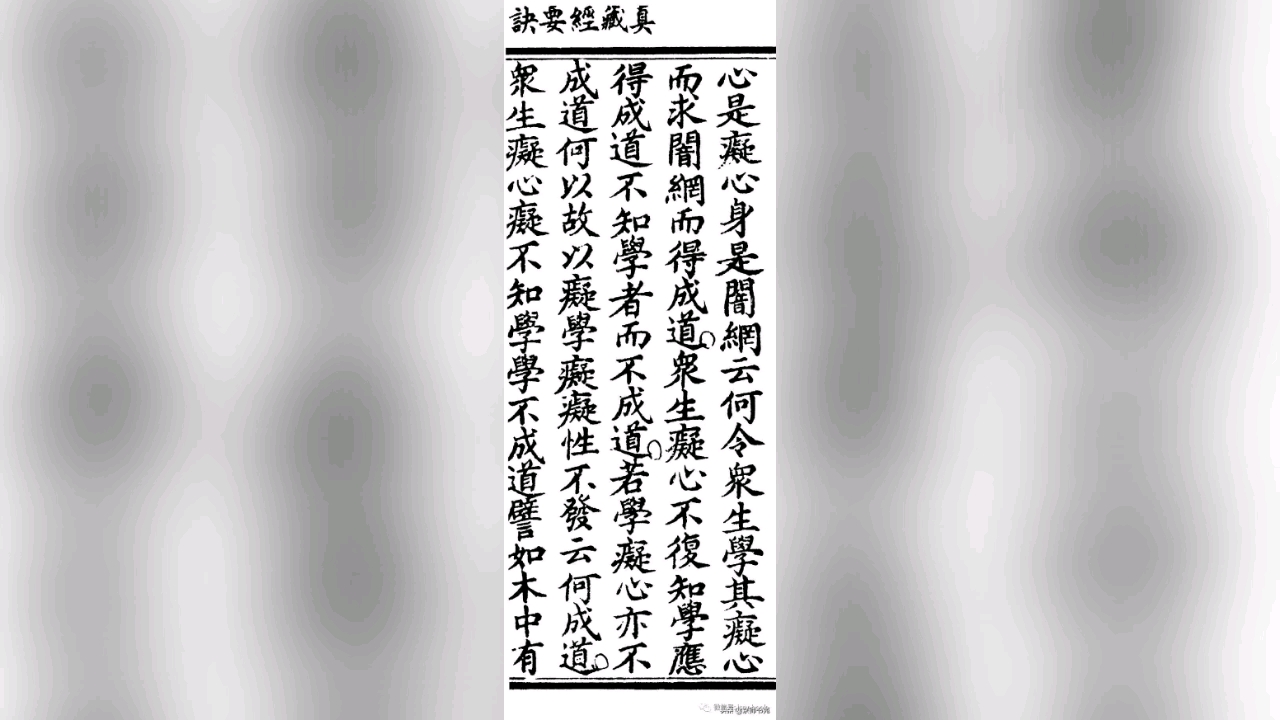 真藏經要訣
心是癡心身是闇網云何令衆生學其癡心
而求闇網而得成道○衆生癡心不復知學應
得成道不知學者而不成道○若學癡心亦不
成道何以故以癡學癡癡性不發云何成道○
衆生癡心癡不知學學不成道譬如木中有